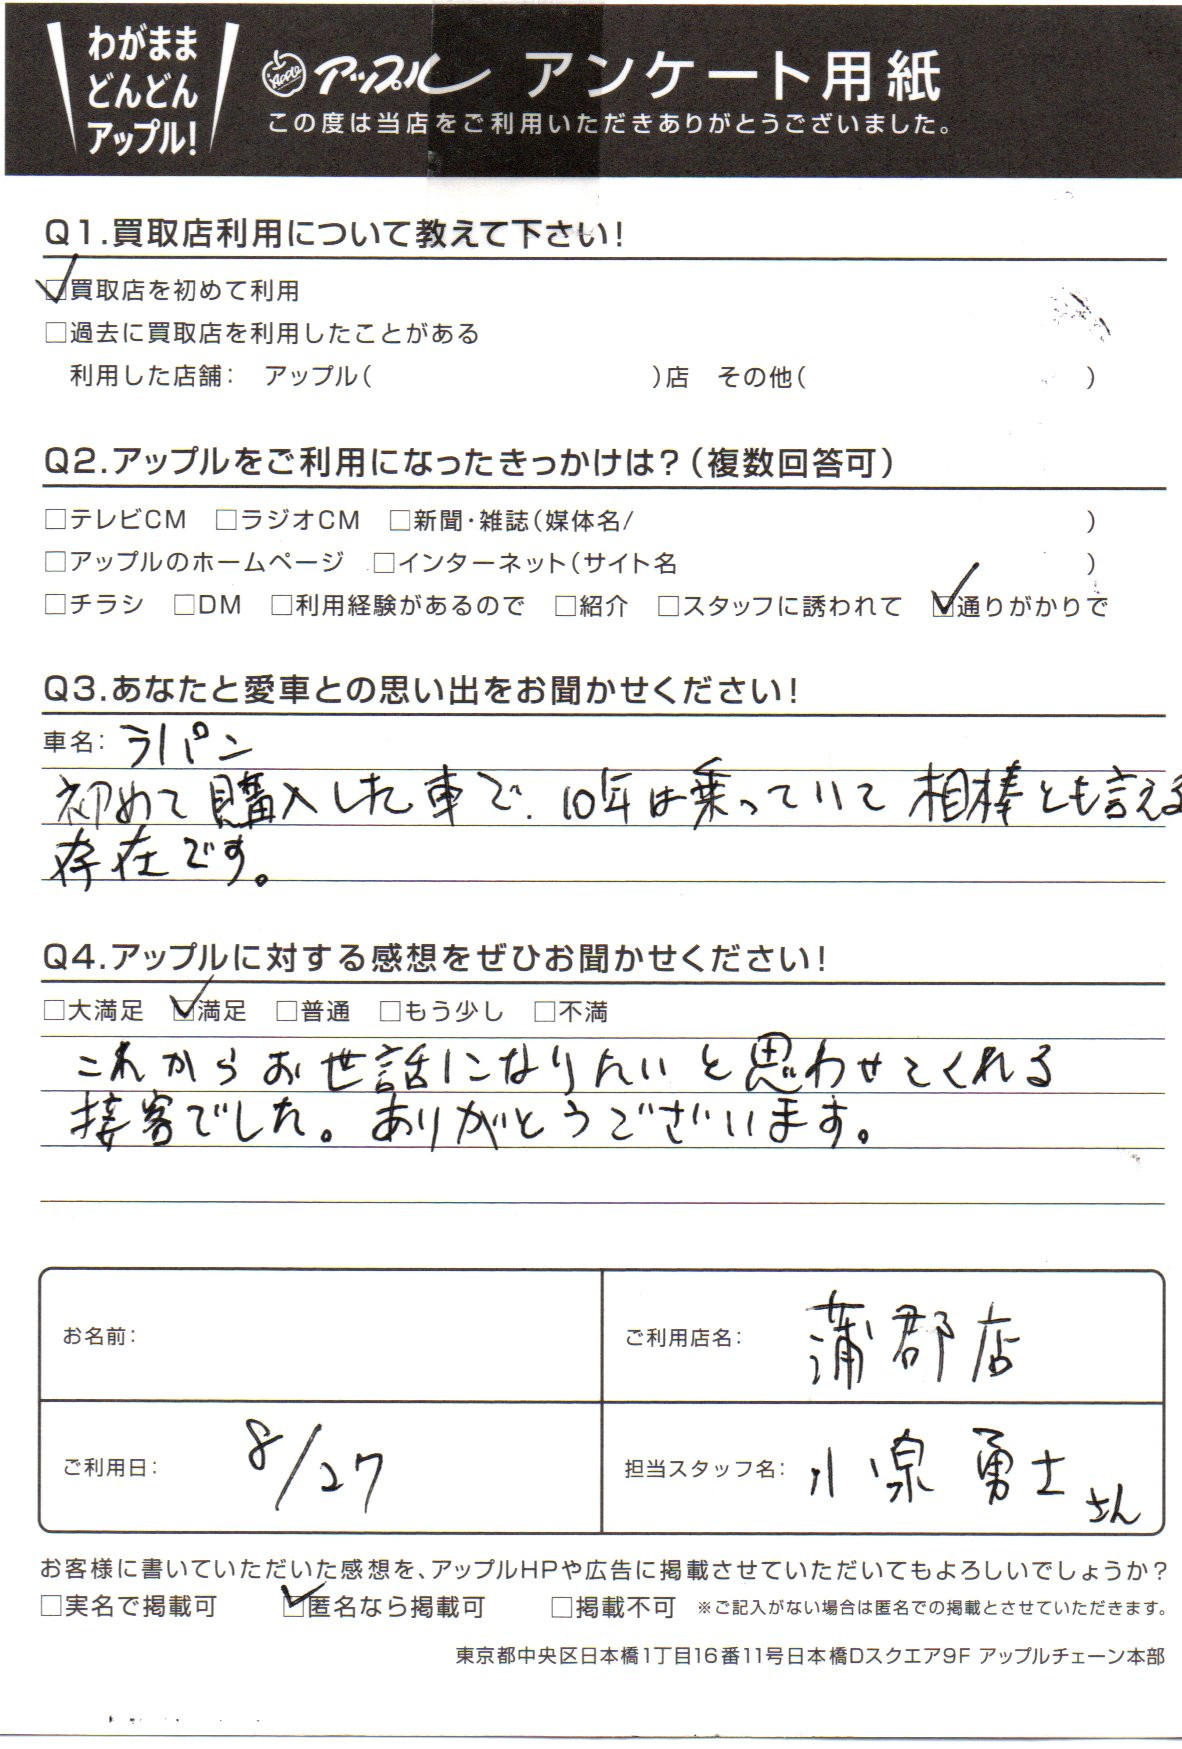 わがまま
どんどん
アップル!
Apple アップル アンケート用紙
この度は当店をご利用いただきありがとうございました。
Q1.買取店利用について教えて下さい!
☑買取店を初めて利用
□過去に買取店を利用したことがある
利用した店舗: アップル( )店 その他( )
Q2.アップルをご利用になったきっかけは?(複数回答可)
□テレビCM □ラジオCM □新聞・雑誌(媒体名/ )
□アップルのホームページ □インターネット(サイト名 )
□チラシ □DM □利用経験があるので □紹介 □スタッフに誘われて ☑通りがかりで
Q3.あなたと愛車との思い出をお聞かせください!
車名: ラパン
初めて購入した車で、10年は乗っていて相棒とも言える
存在です。
Q4.アップルに対する感想をぜひお聞かせください!
□大満足 ☑満足 □普通 □もう少し □不満
これからお世話になりたいと思わせてくれる
接客でした。ありがとうございます。
お名前:
ご利用店名: 蒲郡店
ご利用日: 8/27
担当スタッフ名: 小泉 勇士さん
お客様に書いていただいた感想を、アップルHPや広告に掲載させていただいてもよろしいでしょうか?
□実名で掲載可 ☑匿名なら掲載可 □掲載不可 ※ご記入がない場合は匿名での掲載とさせていただきます。
東京都中央区日本橋1丁目16番11号日本橋Dスクエア9F アップルチェーン本部